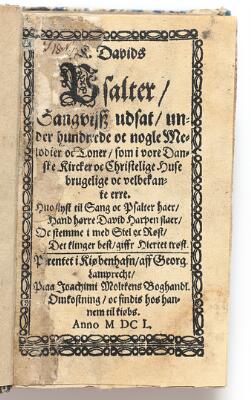 K. Davids
Psalter/
Sangvijß udsat/ un-
der hundrede oc nogle Me-
lodier oc Toner/ som i vore Dan-
ske Kircker oc Christelige Huse
brugelige oc velbekan-
te erre.
Huo/lyst til Sang oc Psalter haer/
Hand hørre David Harpen slaer/
Oc stemme i med Siel oc Røst/
Det klinger best/giffr Hiertet trøst.
Prentet i Kiøbenhafn/ aff Georg
Lamprecht/
Paa Joachimi Moltkens Boghandl.
Omkostning/ oc findis hos han-
nem til kiøbs.
Anno M DC L.